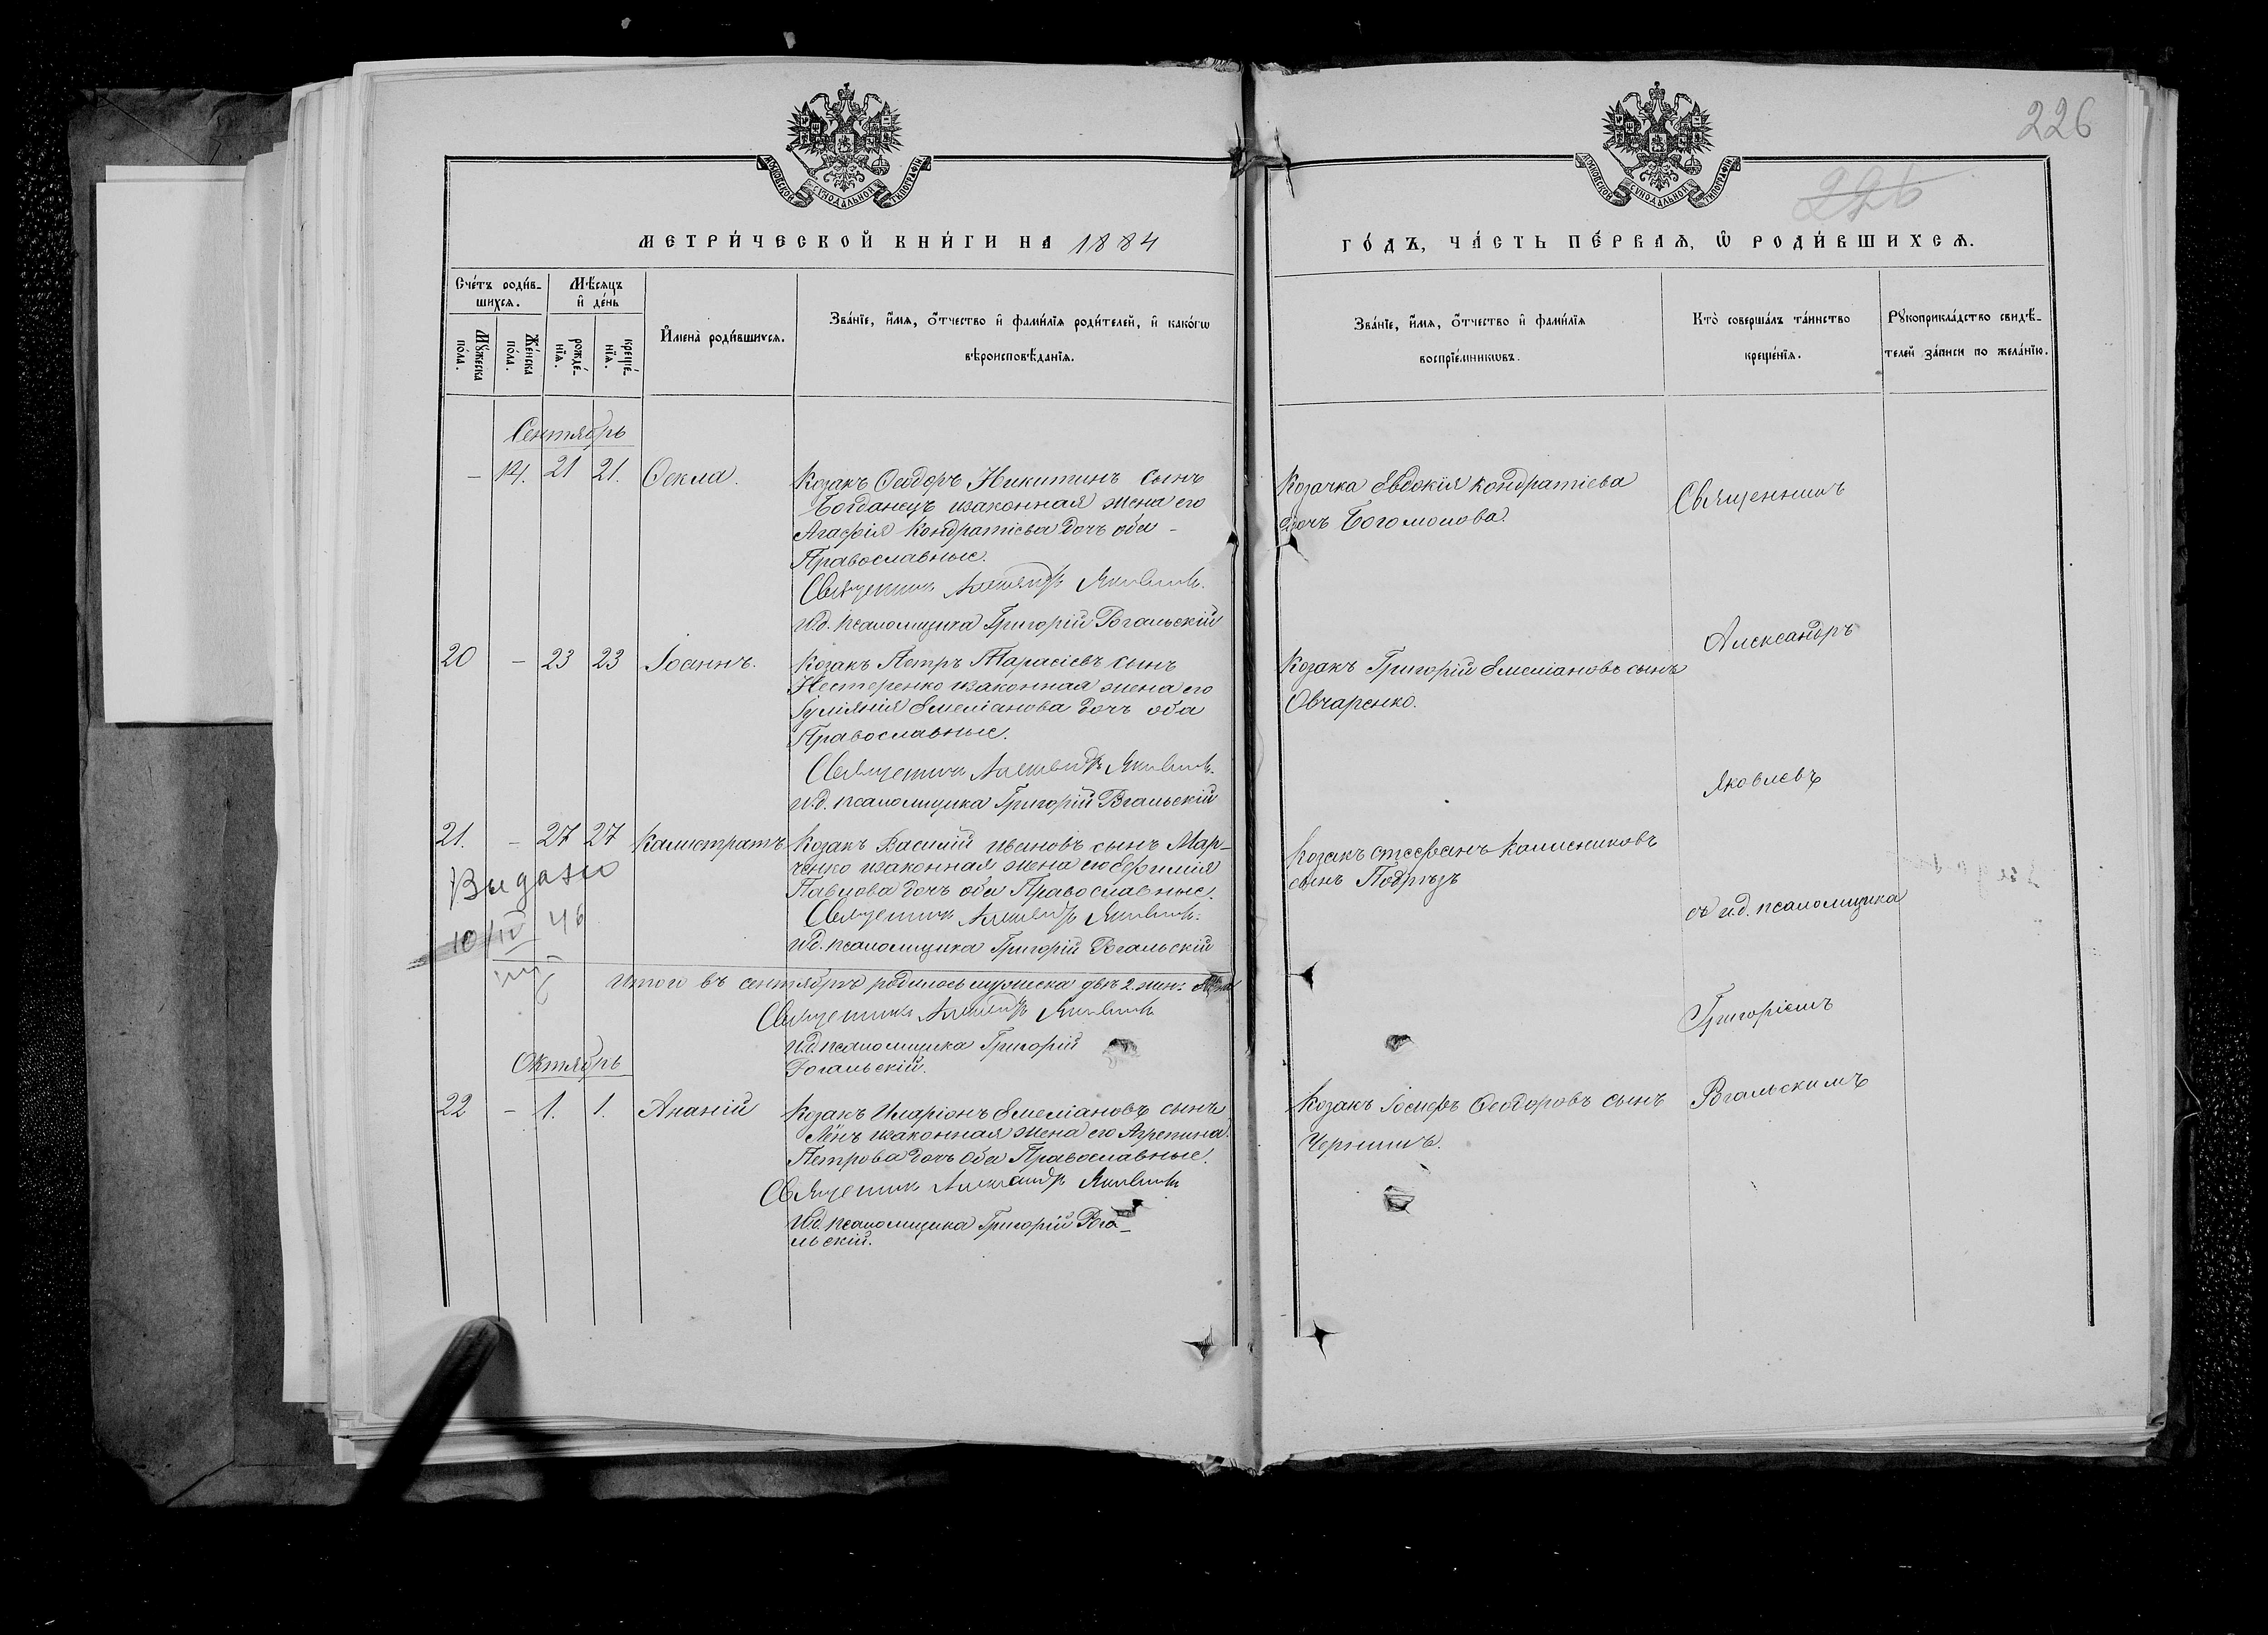 226
226
МОСКОВСКОЙ СУНОДАЛЬНОЙ ТИПОГРАФІИ
МОСКОВСКОЙ СУНОДАЛЬНОЙ ТИПОГРАФІИ
МЕТРИ́ЧЕСКОЙ КНИ́ГИ НА 1884
ГО́ДЪ, ЧА́СТЬ ПЕ́РВАѦ, Ѡ РОДИ́ВШИХСѦ.
Сче́тъ роди́в-
шихсѧ.
Мꙋ́жеска по́ла.
Же́нска по́ла.
Мѣ́сяцъ
и҆ де́нь
рожде́-
нїѧ.
креще́-
нїѧ.
И҆мена̀ роди́вшихсѧ.
Зва́нїе, и҆́мѧ, ѻ҆́тчество и҆ фами́лїѧ роди́телей, и҆ како́гѡ
вѣроисповѣ́данїѧ.
Зва́нїе, и҆́мѧ, ѻ҆́тчество и҆ фами́лїѧ
воспрїе́мникѡвъ.
Кто̀ соверша́лъ та́инство
креще́нїѧ.
Рꙋкоприкла́дство свидѣ́-
телей за́писи по жела́нїю.
Сентябрь
– 14. 21 21. Ѳекла.
Козакъ Ѳеодоръ Никитинъ сынъ
Богданецъ изаконная жена его
Агафія Кондратіева дочь оба
Православные.
Священникъ Александръ Яковлевъ.
И.д. псаломщика Григорій Рогальскій
Козачка Евдокія Кондратіева
дочь Богомолова.
20 – 23 23 Іоаннъ.
Козакъ Петръ Тарасіевъ сынъ
Нестеренко изаконная жена его
Іуліянія Емеліанова дочь оба
Православные.
Священникъ Александръ Яковлевъ.
И.д. псаломщика Григорій Рогальскій
Козакъ Григорій Емеліановъ сынъ
Овчаренко.
21. – 27 27 Калистратъ
Козакъ Василій Ивановъ сынъ Мар-
ченко изаконная жена его Ефимія
Павлова дочь оба Православные.
Священникъ Александръ Яковлевъ.
И.д. псаломщика Григорій Рогальскій
Козакъ Стефанъ Калениковъ
сынъ Подрѣзъ
Видано
10/IV 46
Итого въ сентябрѣ родилось мужеска два 2. жен:
Священникъ Александръ Яковлевъ
И.д. псаломщика Григорій
Рогальскій.
Октябрь
22 – 1. 1. Ананій
Козакъ Иларіонъ Емеліановъ сынъ
Лѣнъ изаконная жена его Агрепина
Петрова дочь оба Православные.
Священникъ Александръ Яковлевъ
И.д. псаломщика Григорій Рога-
льскій.
Козакъ Іосифъ Ѳеодоровъ сынъ
Чернышъ.
Священникъ
Александръ
Яковлевъ
съ и.д. псаломщика
Григоріемъ
Рогальскимъ